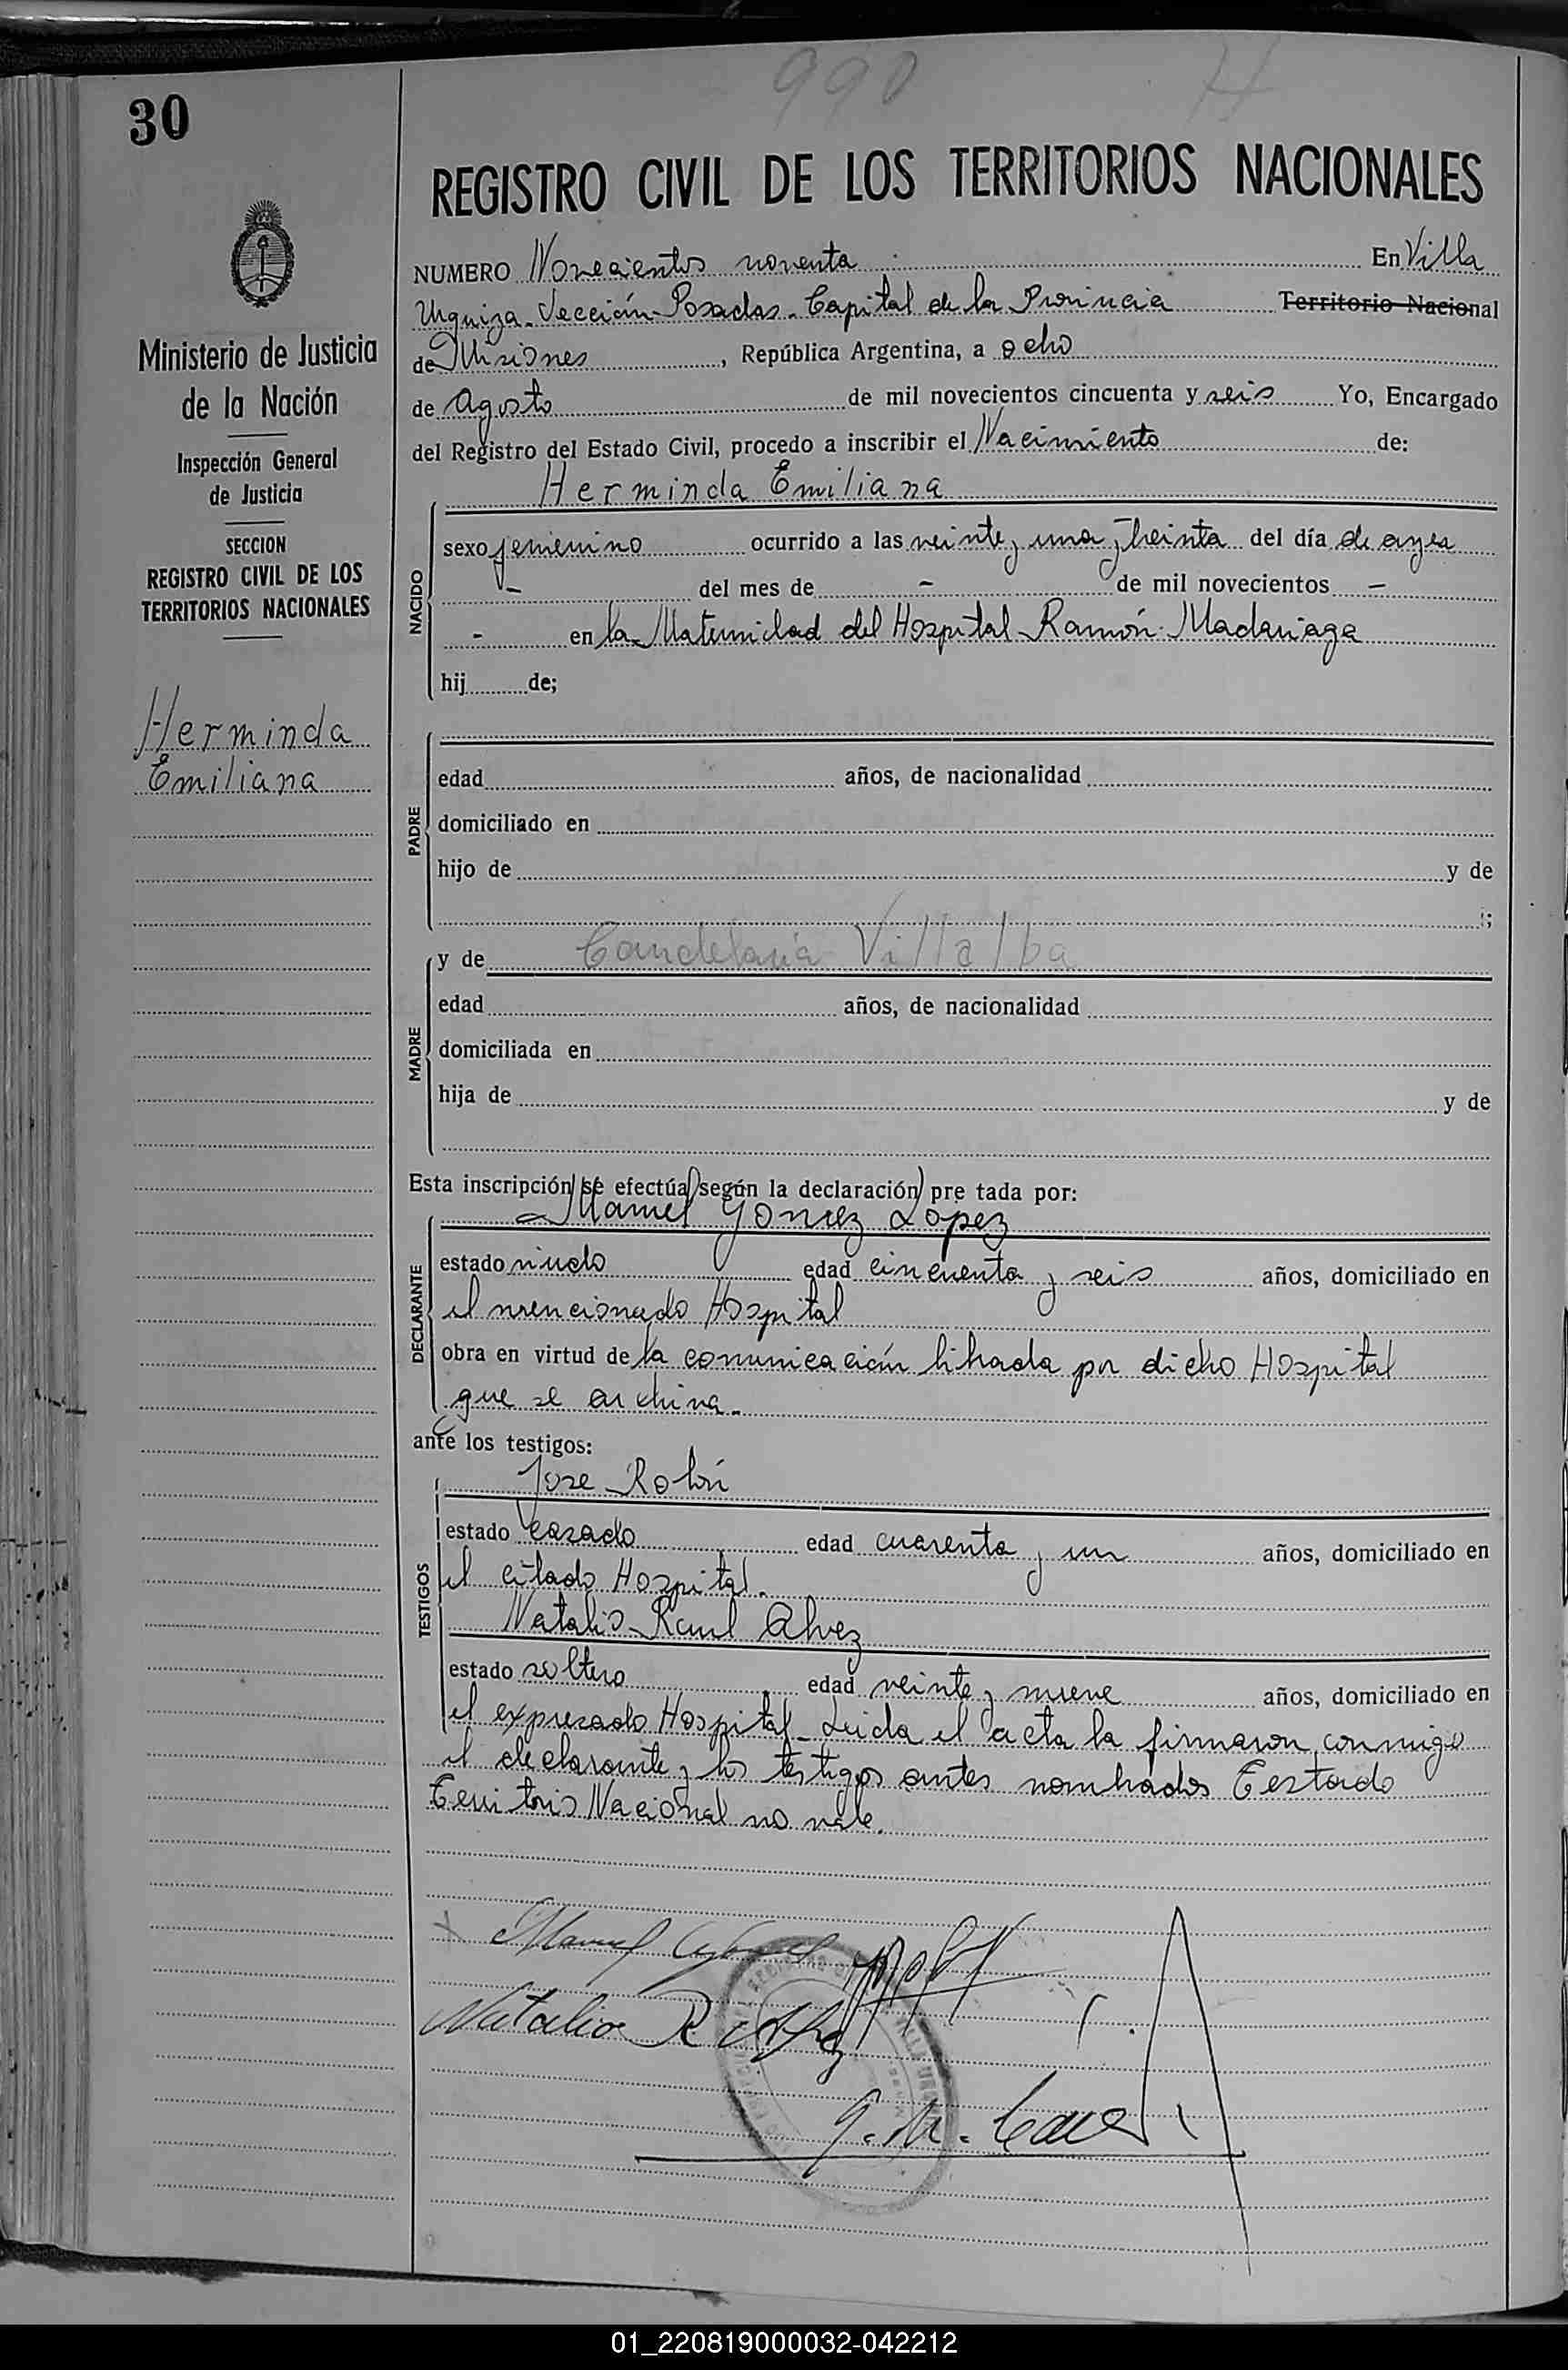 990 H
30
REGISTRO CIVIL DE LOS TERRITORIOS NACIONALES
Ministerio de Justicia
de la Nación
Inspección General
de Justicia
SECCION
REGISTRO CIVIL DE LOS
TERRITORIOS NACIONALES
Herminda
Emiliana
NUMERO Novecientos noventa En Villa
Urquiza Sección Posadas. Capital de la Provincia Territorio Nacional
de Misiones, República Argentina, a ocho
de Agosto de mil novecientos cincuenta y seis Yo, Encargado
del Registro del Estado Civil, procedo a inscribir el Nacimiento de:
Herminda Emiliana
NACIDO
sexo femenino ocurrido a las veinte y una y treinta del día de ayer
- del mes de - de mil novecientos -
- en la Maternidad del Hospital Ramón Madariaga
hij de;
PADRE
edad años, de nacionalidad
domiciliado en
hijo de y de
;
MADRE
y de Candelaria Villalba
edad años, de nacionalidad
domiciliada en
hija de y de
Esta inscripción se efectúa según la declaración pre tada por:
DECLARANTE
Manuel Gomez Lopez
estado viudo edad cincuenta y seis años, domiciliado en
el mencionado Hospital
obra en virtud de la comunicación librada por dicho Hospital
que se archiva.
ante los testigos:
TESTIGOS
Jose Rolón
estado casado edad cuarenta y un años, domiciliado en
el citado Hospital.
Natalio Raul Alvez
estado soltero edad veinte y nueve años, domiciliado en
el expresado Hospital. Leida el acta la firmaron conmigo
el declarante y los testigos antes nombrados Testado
Territorio Nacional no vale.
Manuel
Natalio R Alvez
01_220819000032-042212